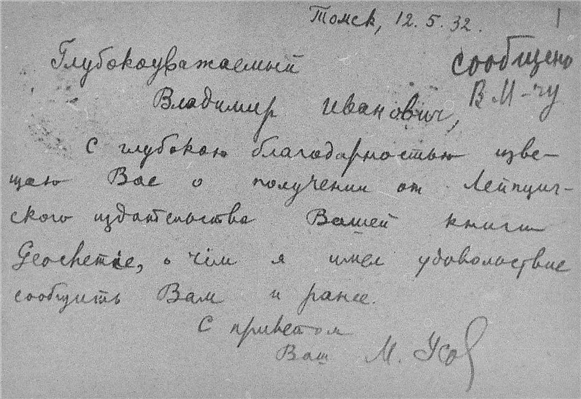 Томск, 12.5.32.
1
Глубокоуважаемый
сообщено
Владимир Иванович,
В. И-чу
С глубокою благодарностью изве-
щаю Вас о получении от Лейпциг-
ского издательства Вашей книги
Geochemie, о чём я имел удовольствие
сообщить Вам и ранее.
С приветом
Ваш М. Усов